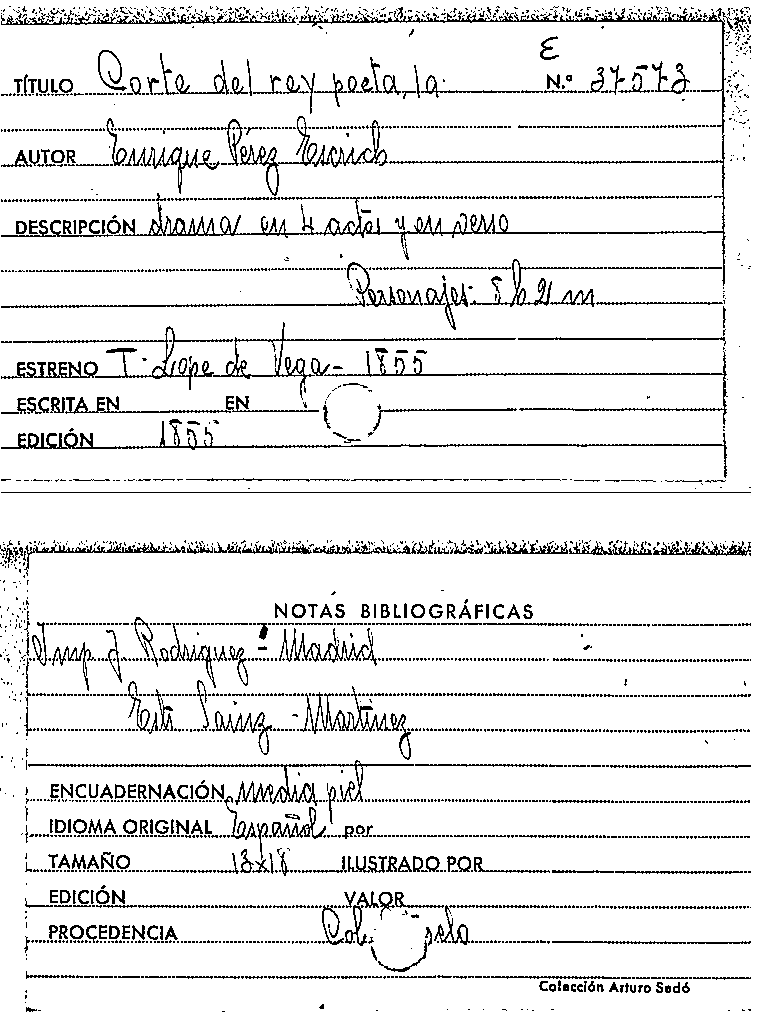 E
TÍTULO Corte del rey poeta, la. N.º 37573
AUTOR Enrique Pérez Escrich
DESCRIPCIÓN drama en 4 actos y en verso
Personajes: 8 h 2 m
ESTRENO T. Lope de Vega - 1855
ESCRITA EN EN
EDICIÓN 1855
NOTAS BIBLIOGRÁFICAS
Imp J. Rodriguez - Madrid
Sainz - Martinez
ENCUADERNACIÓN media piel
IDIOMA ORIGINAL Español por
TAMAÑO 13x18 ILUSTRADO POR
EDICIÓN VALOR
PROCEDENCIA
Colección Arturo Sedó